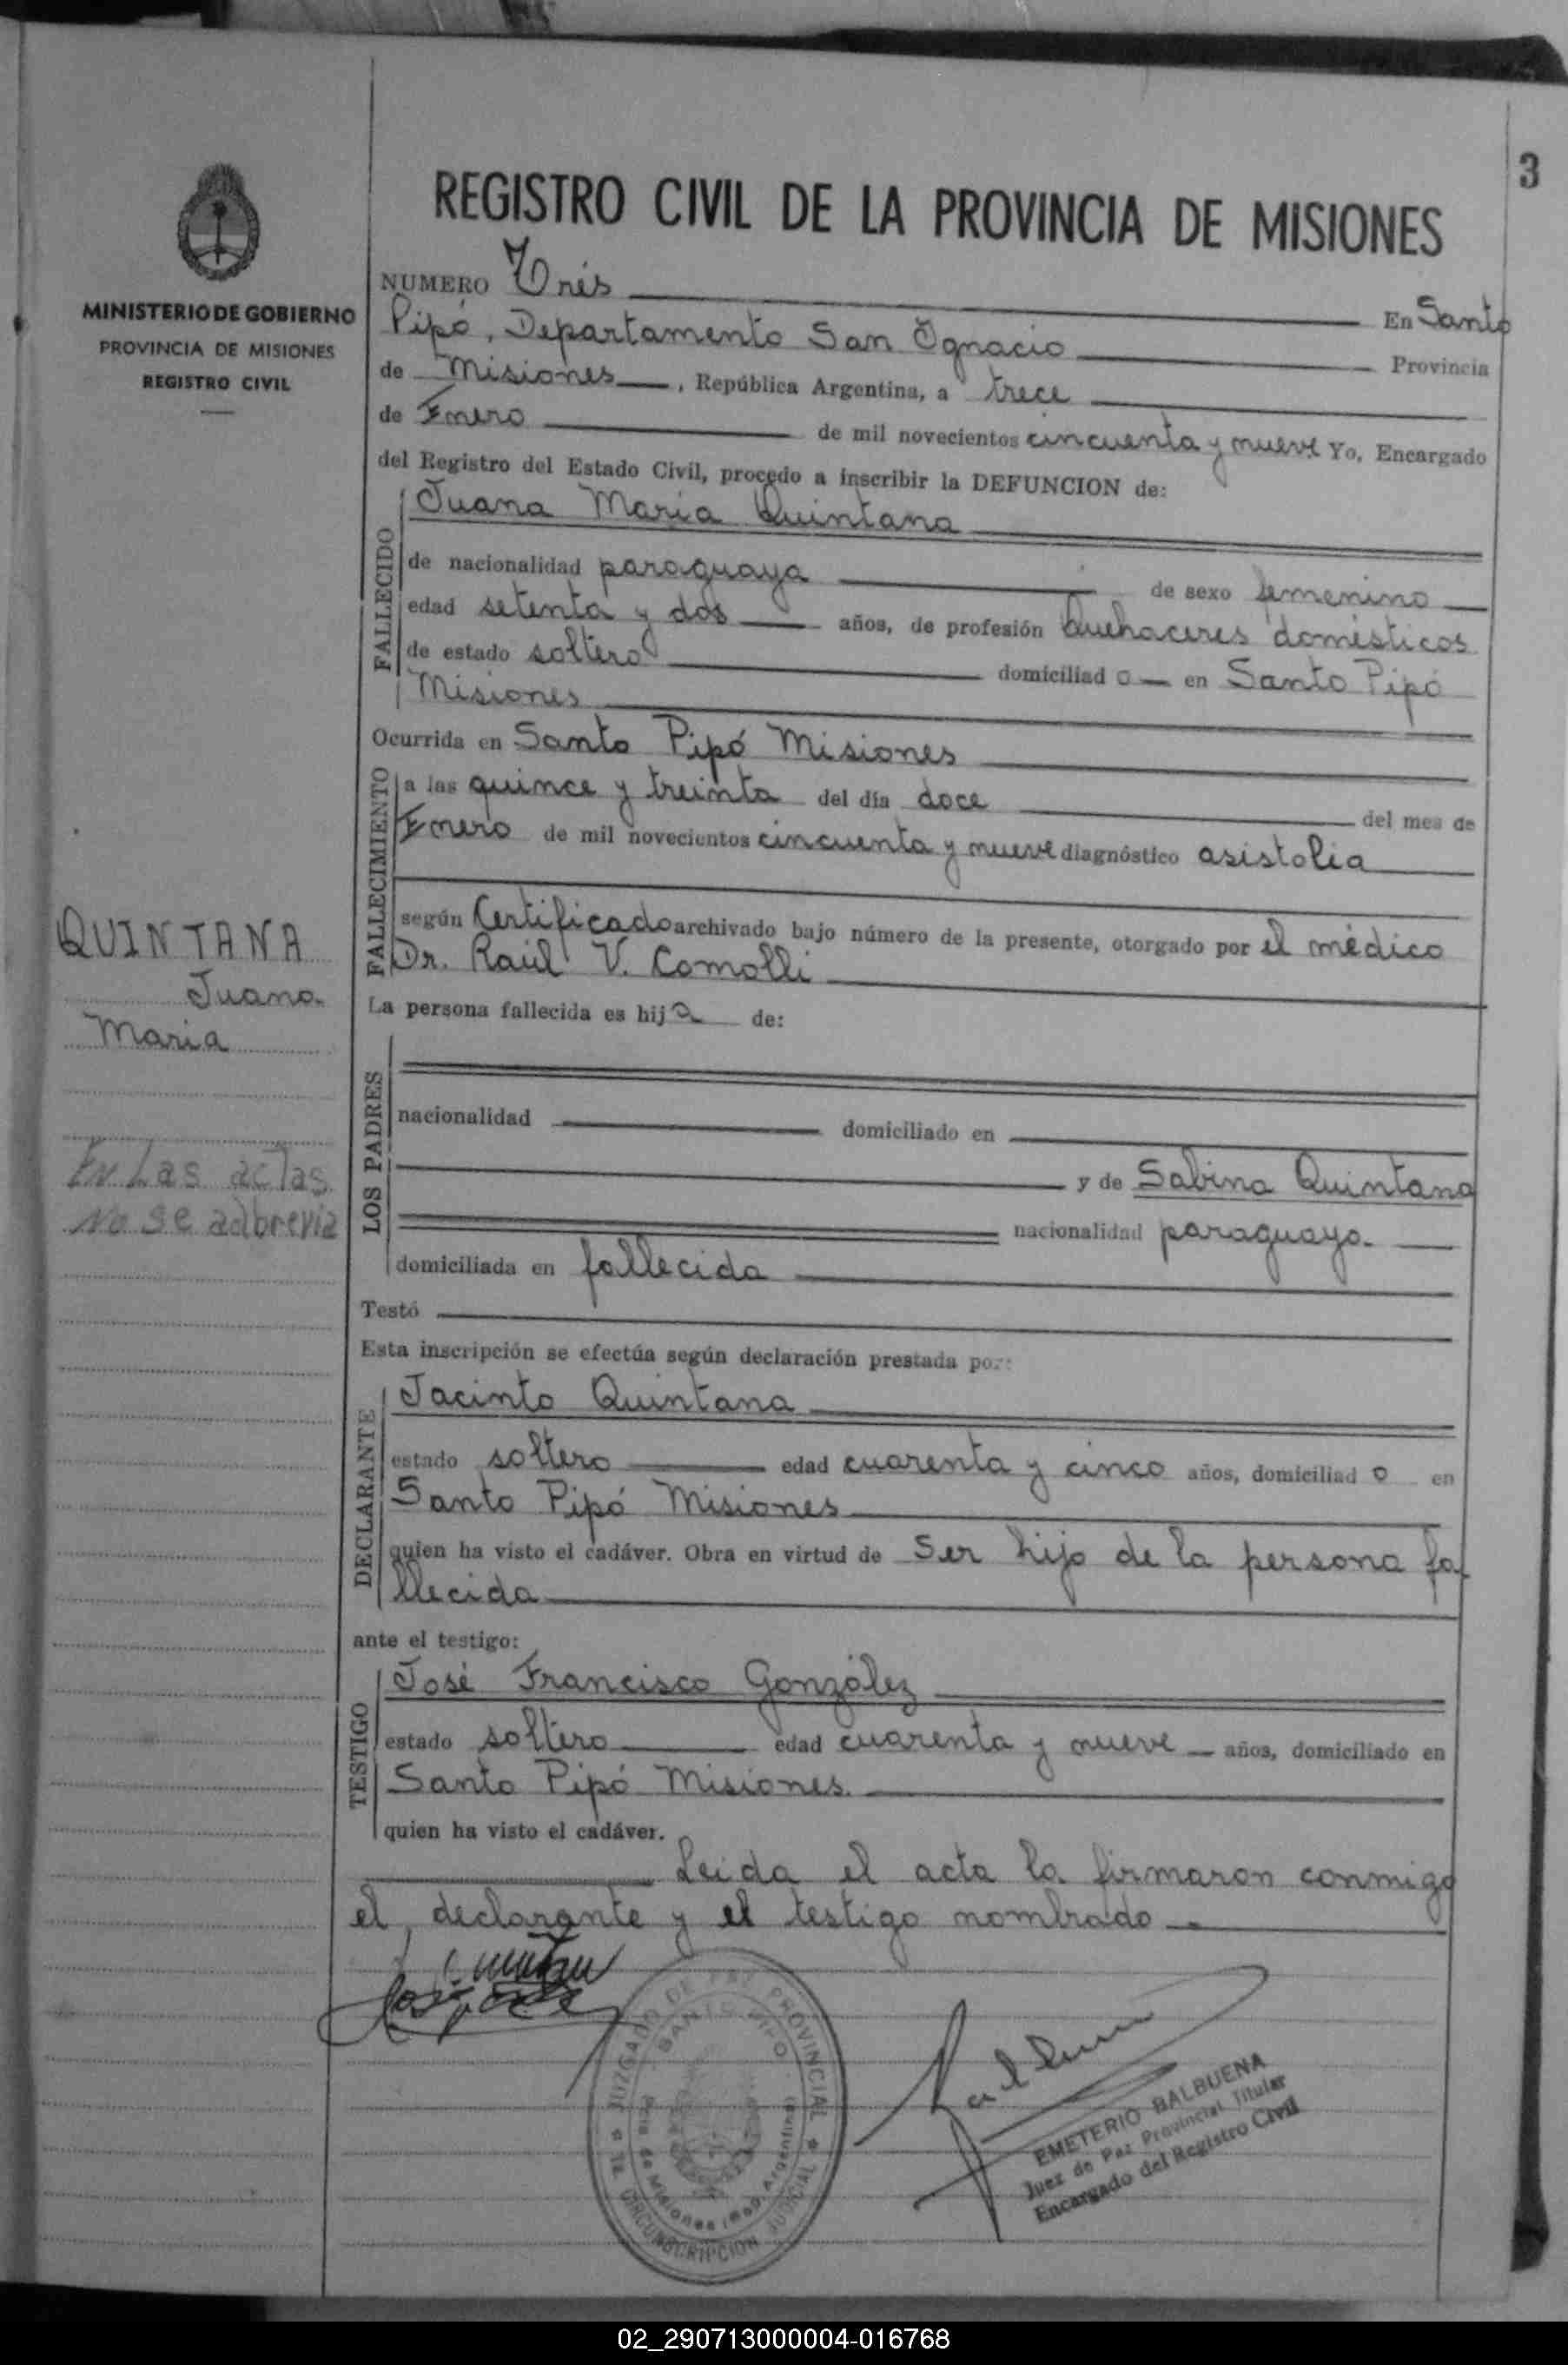 3
REGISTRO CIVIL DE LA PROVINCIA DE MISIONES
MINISTERIO DE GOBIERNO
PROVINCIA DE MISIONES
REGISTRO CIVIL
NUMERO Trés En Santo
Pipó, Departamento San Ignacio Provincia
de Misiones, República Argentina, a trece
de Enero de mil novecientos cincuenta y nueve Yo, Encargado
del Registro del Estado Civil, procedo a inscribir la DEFUNCION de:
FALLECIDO
Juana María Quintana
de nacionalidad paraguaya de sexo femenino
edad setenta y dos años, de profesión Quehaceres domésticos
de estado soltero domiciliad o en Santo Pipó
Misiones
Ocurrida en Santo Pipó Misiones
FALLECIMIENTO
a las quince y treinta del día doce del mes de
Enero de mil novecientos cincuenta y nueve diagnóstico asistolia
según Certificado archivado bajo número de la presente, otorgado por el médico
Dr. Raúl V. Comolli
QUINTANA
Juana
María
En Las actas
No se adbrevia
La persona fallecida es hij a de:
LOS PADRES
nacionalidad domiciliado en
y de Sabina Quintana
nacionalidad paraguaya
domiciliada en fallecida
Testó
Esta inscripción se efectúa según declaración prestada por:
DECLARANTE
Jacinto Quintana
estado soltero edad cuarenta y cinco años, domiciliad o en
Santo Pipó Misiones
quien ha visto el cadáver. Obra en virtud de Ser hijo de la persona fa-
llecida
ante el testigo:
TESTIGO
José Francisco González
estado soltero edad cuarenta y nueve años, domiciliado en
Santo Pipó Misiones.
quien ha visto el cadáver.
Leida el acta la firmaron conmigo
el declarante y el testigo nombrado
JUZGADO DE PAZ PROVINCIAL
SANTO PIPO
Pcia. de Misiones (Rep. Argentina)
1a. CIRCUNSCRIPCION JUDICIAL
EMETERIO BALBUENA
Juez de Paz Provincial Titular
Encargado del Registro Civil
02_290713000004-016768